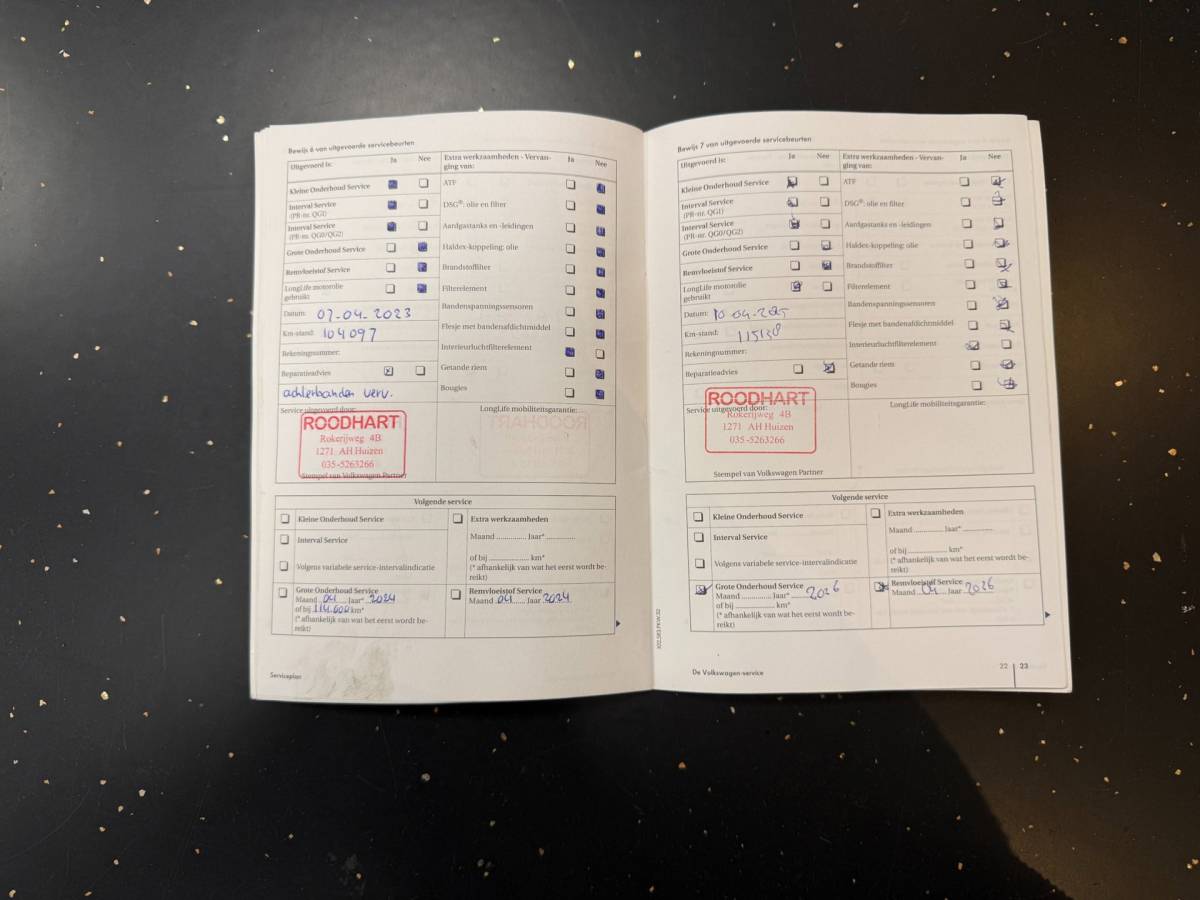 Bewijs 6 van uitgevoerde servicebeurten
Uitgevoerd is: Ja Nee
Kleine Onderhoud Service
Interval Service
(PR-nr. QG1)
Interval Service
(PR-nr. QG0/QG2)
Grote Onderhoud Service
Remvloeistof Service
LongLife motorolie
gebruikt
Datum: 07-04-2023
Km-stand: 104097
Rekeningnummer:
Reparatieadvies
achterbanden verv.
Extra werkzaamheden - Vervan-
ging van: Ja Nee
ATF
DSG®: olie en filter
Aardgastanks en -leidingen
Haldex-koppeling: olie
Brandstoffilter
Filterelement
Bandenspanningssensoren
Flesje met bandenafdichtmiddel
Interieurluchtfilterelement
Getande riem
Bougies
Service uitgevoerd door:
ROODHART
Rokerijweg 4B
1271 AH Huizen
035-5263266
Stempel van Volkswagen Partner
LongLife mobiliteitsgarantie:
Volgende service
Kleine Onderhoud Service
Interval Service
Volgens variabele service-intervalindicatie
Grote Onderhoud Service
Maand 04 Jaar* 2024
of bij 114.000 km*
(* afhankelijk van wat het eerst wordt be-
reikt)
Extra werkzaamheden
Maand Jaar*
of bij km*
(* afhankelijk van wat het eerst wordt be-
reikt)
Remvloeistof Service
Maand 04 Jaar 2024
Serviceplan
Bewijs 7 van uitgevoerde servicebeurten
Uitgevoerd is: Ja Nee
Kleine Onderhoud Service
Interval Service
(PR-nr. QG1)
Interval Service
(PR-nr. QG0/QG2)
Grote Onderhoud Service
Remvloeistof Service
LongLife motorolie
gebruikt
Datum: 10-04-2025
Km-stand: 115138
Rekeningnummer:
Reparatieadvies
Extra werkzaamheden - Vervan-
ging van: Ja Nee
ATF
DSG®: olie en filter
Aardgastanks en -leidingen
Haldex-koppeling: olie
Brandstoffilter
Filterelement
Bandenspanningssensoren
Flesje met bandenafdichtmiddel
Interieurluchtfilterelement
Getande riem
Bougies
Service uitgevoerd door:
ROODHART
Rokerijweg 4B
1271 AH Huizen
035-5263266
Stempel van Volkswagen Partner
LongLife mobiliteitsgarantie:
Volgende service
Kleine Onderhoud Service
Interval Service
Volgens variabele service-intervalindicatie
Grote Onderhoud Service
Maand Jaar* 2026
of bij km*
(* afhankelijk van wat het eerst wordt be-
reikt)
Extra werkzaamheden
Maand Jaar*
of bij km*
(* afhankelijk van wat het eerst wordt be-
reikt)
Remvloeistof Service
Maand 04 Jaar 2026
De Volkswagen-service
22 23